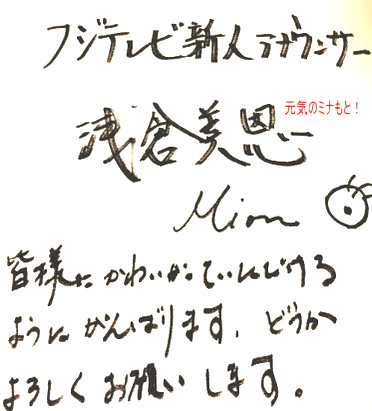 フジテレビ新人アナウンサー
浅倉美恩
元気のミナもと！
Mion
皆様にかわいがっていただける
ようにがんばります。どうか
よろしくお願いします。